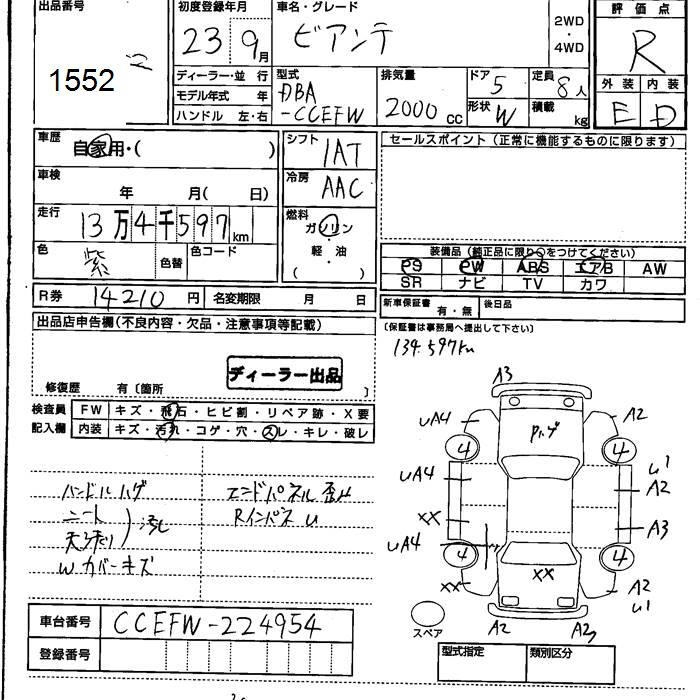 出品番号
1552
初度登録年月
23 9月
車名・グレード
ビアンテ
2WD
・
4WD
評価点
R
外装 内装
E D
ディーラー・並行
モデル年式 年
ハンドル 左・右
型式
DBA
-CCEFW
排気量
2000 cc
ドア 5
形状 W
定員 8人
積載 kg
車歴
自家用・( )
車検
年 月( 日)
走行
13万4千597km
色
紫
色替
色コード
シフト
1AT
冷房
AAC
燃料
ガソリン
・
軽・油
( )
セールスポイント(正常に機能するものに限ります)
装備品(純正品に限り○をつけてください)
PS PW ABS エアB AW
SR ナビ TV カワ
R券 14210円
名変期限 月 日
新車保証書 有・無
後日品
(保証書は事務局へ提出して下さい)
134.597km
出品店申告欄(不良内容・欠品・注意事項等記載)
ディーラー出品
修復歴 有〔箇所 〕
検査員
記入欄
FW キズ・飛石・ヒビ割・リペア跡・X要
内装 キズ・汚れ・コゲ・穴・スレ・キレ・破レ
ハンドルハゲ
シート
天張り
汚れ
Wカバーキズ
エンドパネル歪み
Rインパネ U
A3
UA4
A2
4
4
UA4
U1
A2
XX
A3
UA4
4
4
XX
XX
A2
U1
A2
A2
スペア
車台番号 CCEFW-224954
登録番号
型式指定
類別区分